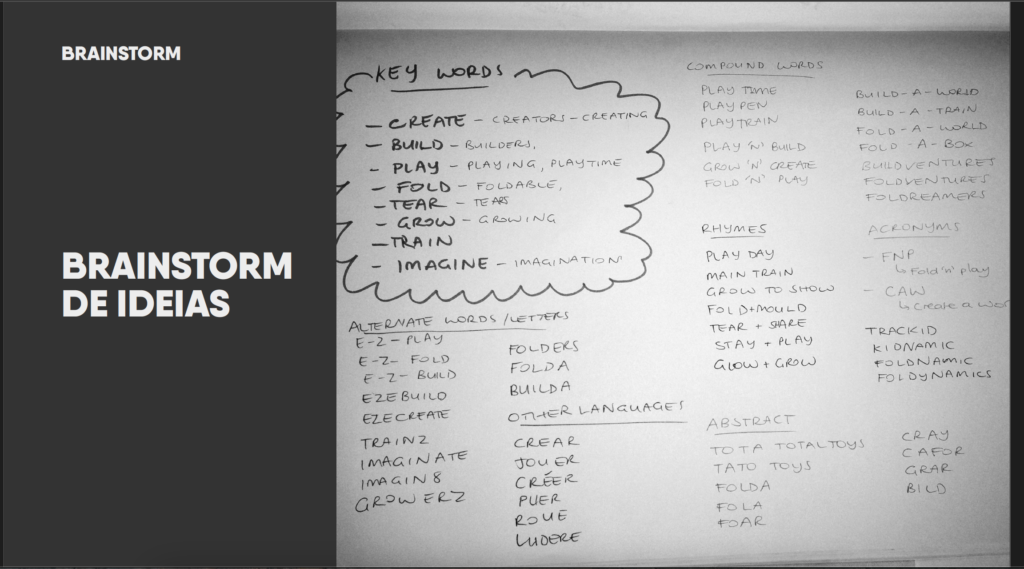 BRAINSTORM
BRAINSTORM
DE IDEIAS
KEY WORDS
– CREATE – CREATORS – CREATING
– BUILD – BUILDERS,
– PLAY – PLAYING, PLAYTIME
– FOLD – FOLDABLE,
– TEAR – TEARS
– GROW – GROWING
– TRAIN
– IMAGINE – IMAGINATION
ALTERNATE WORDS / LETTERS
E-Z-PLAY
E-Z-FOLD
E-Z-BUILD
EZEBUILD
EZECREATE
TRAINZ
IMAGINATE
IMAGIN8
GROWERZ
FOLDERS
FOLDA
BUILDA
OTHER LANGUAGES
CREAR
JOUER
CRÉER
PUER
ROUE
LUDERE
COMPOUND WORDS
PLAY TIME
PLAY PEN
PLAYTRAIN
PLAY 'N' BUILD
GROW 'N' CREATE
FOLD 'N' PLAY
BUILD-A-WORLD
BUILD-A-TRAIN
FOLD-A-WORLD
FOLD-A-BOX
BUILDVENTURES
FOLDVENTURES
FOLDREAMERS
RHYMES
PLAY DAY
MAIN TRAIN
GROW TO SHOW
FOLD+MOULD
TEAR + SHARE
STAY + PLAY
GLOW + GROW
ACRONYMS
– FNP
↳ Fold 'n' play
– CAW
↳ Create a wor
TRACKID
KIDNAMIC
FOLDNAMIC
FOLDYNAMICS
ABSTRACT
TOTA TOTALTOYS
TATO TOYS
FOLDA
FOLA
FOAR
CRAY
CAFOR
GRAR
BILD